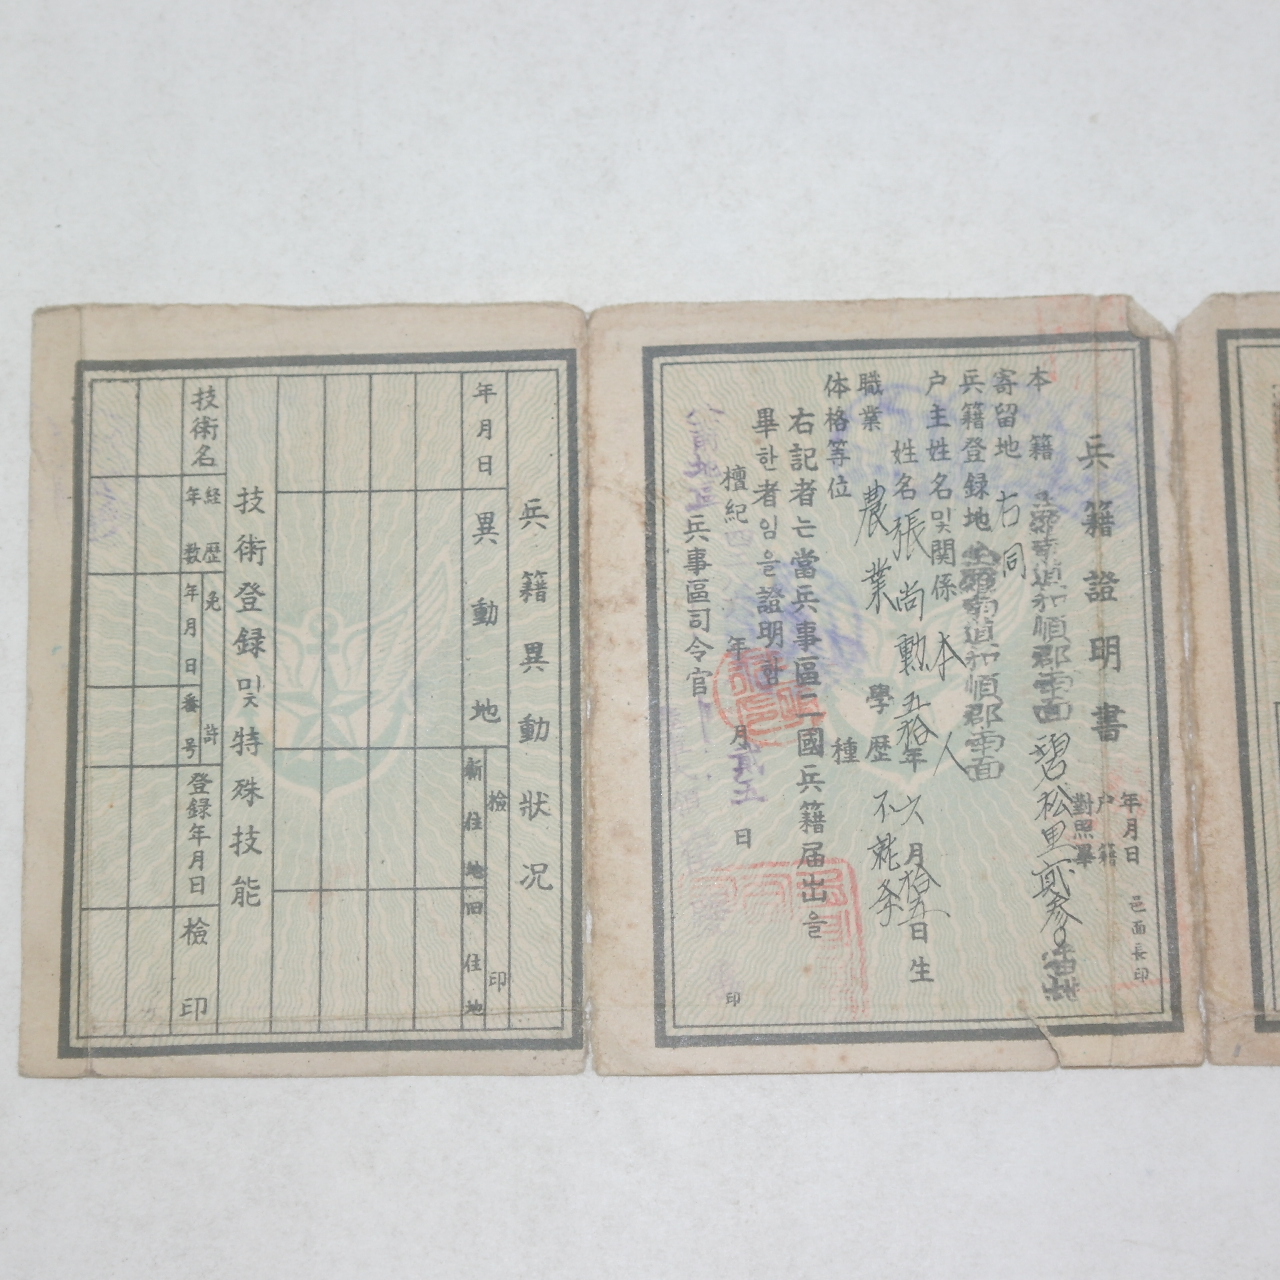 兵籍證明書
年月日
戸籍
對照畢
邑面長印
本籍 全羅南道和順郡 面 碧松里 貳參 番地
寄留地 右同
兵籍登録地 全羅南道和順郡 面
戸主姓名및關係 本人
姓名 張尚勳 五拾年六月拾五日生
職業 農業 學歴 不就学
体格等位 種
右記者는當兵事區二國兵籍届出을
畢한者임을證明함
檀紀四 年 月 日
兵事區司令官 印
兵籍異動狀况
年月日
異動地
檢印
新住地
旧住地
技術登録및特殊技能
技術名
経歴
年数
免許
年月日
番号
登録年月日
檢印